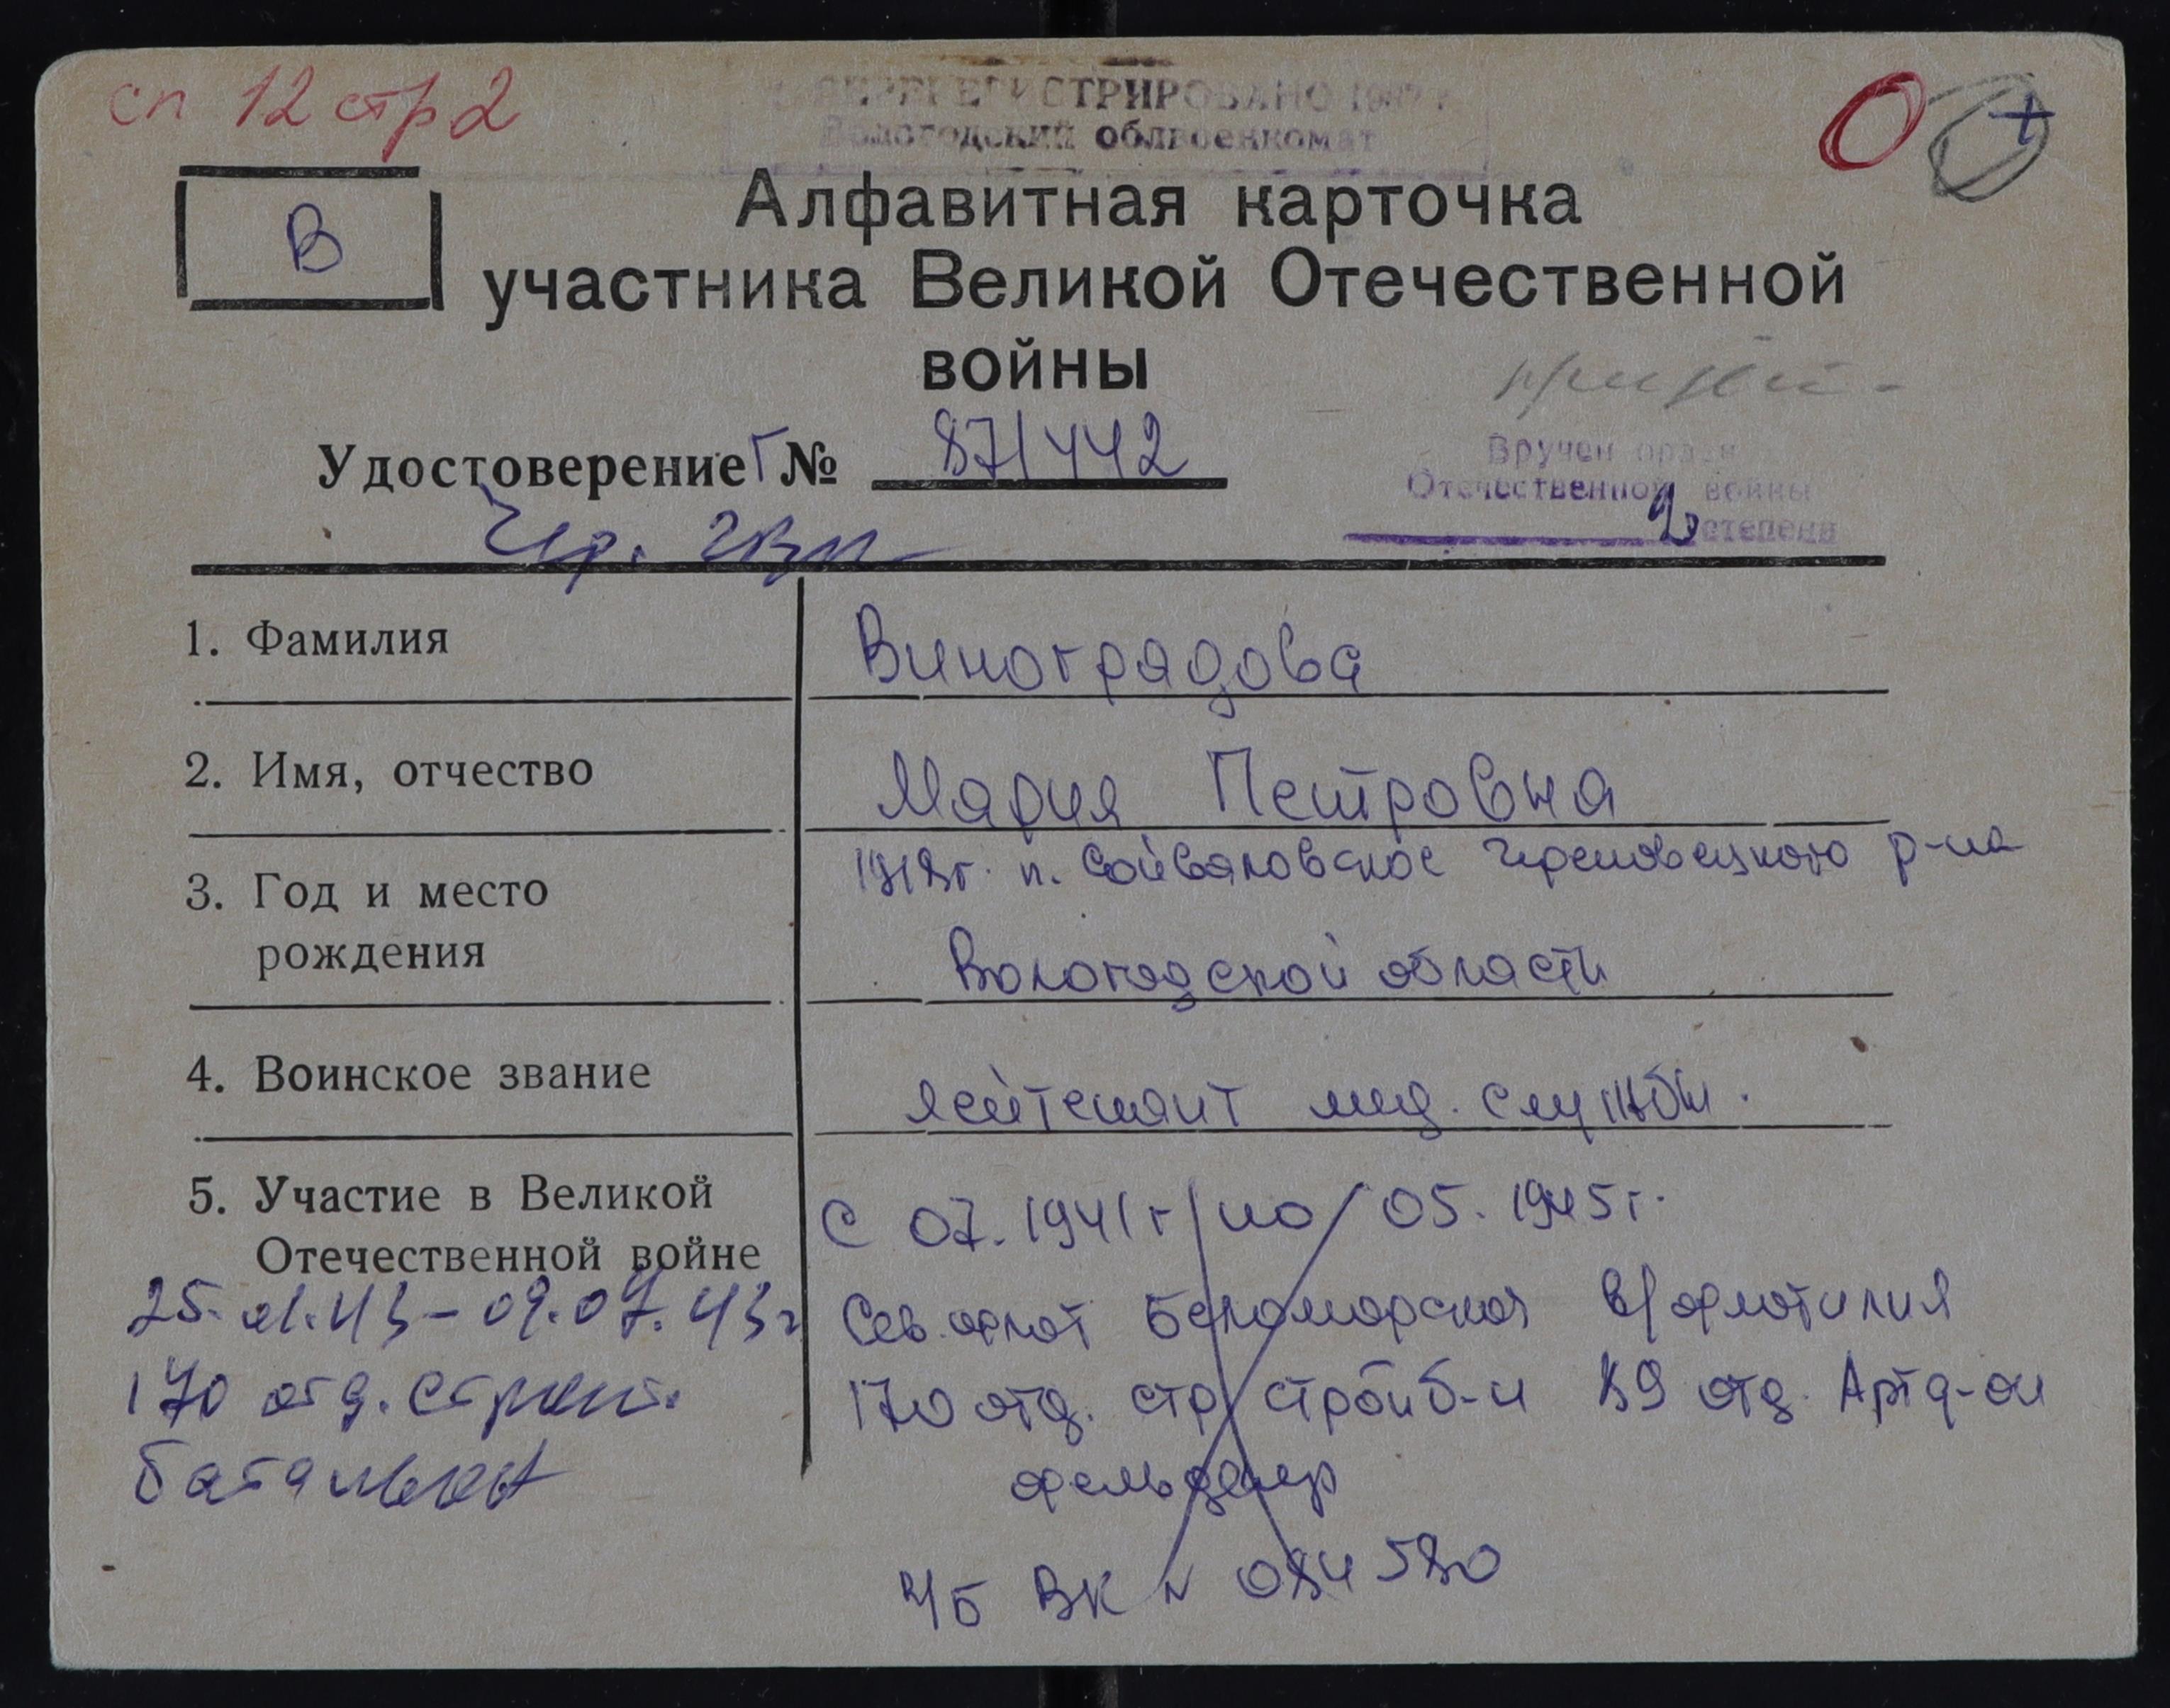 сп 12 стр 2
ПЕРЕРЕГИСТРИРОВАНО
Вологодский облвоенкомат
В
Алфавитная карточка
участника Великой Отечественной
войны
Удостоверение Г № 871442
Вручен орден
Отечественной войны
2 степени
Чер. гвк
1. Фамилия
Виноградова
2. Имя, отчество
Мария Петровна
3. Год и место
рождения
Череповецкого р-на
Вологодской области
4. Воинское звание
лейтенант мед. службы.
5. Участие в Великой
Отечественной войне
с 07.1941г по 05.1945г.
Сев. флот Беломорская в/флотилия
170 отд. стр стройб-н 89 отд. Артд-он
фельдшер
ЧБ ВК N 084580
25.01.43 - 09.07.43г
170 отд. строит.
батальон